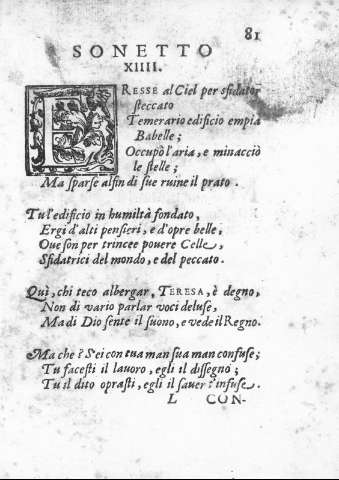 81
SONETTO
XIIII.
ERESSE al Ciel per sfidator
steccato
Temerario edificio empia
Babelle;
Occupò l'aria, e minacciò
le stelle;
Ma sparse alfin di sue ruine il prato.
Tu l'edificio in humiltà fondato,
Ergi d'alti pensieri, e d'opre belle,
Oue son per trincee pouere Celle,
Sfidatrici del mondo, e del peccato.
Quì, chi teco albergar, TERESA, è degno,
Non di vario parlar voci deluse,
Ma di Dio sente il suono, e vede il Regno.
Ma che? S'ei con tua man sua man confuse;
Tu facesti il lauoro, egli il dissegno;
Tu il dito oprasti, egli il sauer t'infuse.
L CON-